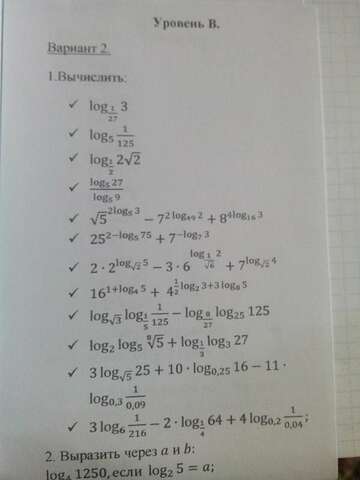 Уровень В.
Вариант 2.
1.Вычислить:
✓ log_{1/27} 3
✓ log_5 1/125
✓ log_{1/2} 2√2
✓ log_5 27 / log_5 9
✓ √5^{2log_5 3} − 7^{2 log_{49} 2} + 8^{4log_{16} 3}
✓ 25^{2−log_5 75} + 7^{−log_7 3}
✓ 2 · 2^{log_{√2} 5} − 3 · 6^{log_{1/√6} 2} + 7^{log_{√2} 4}
✓ 16^{1+log_4 5} + 4^{1/2 log_2 3+3 log_8 5}
✓ log_{√3} log_{1/5} 1/125 − log_{9/27} log_{25} 125
✓ log_2 log_5 ⁸√5 + log_{1/3} log_3 27
✓ 3 log_{√5} 25 + 10 · log_{0,25} 16 − 11 ·
log_{0,3} 1/0,09
✓ 3 log_6 1/216 − 2 · log_{1/4} 64 + 4 log_{0,2} 1/0,04;
2. Выразить через a и b:
log_4 1250, если log_2 5 = a;